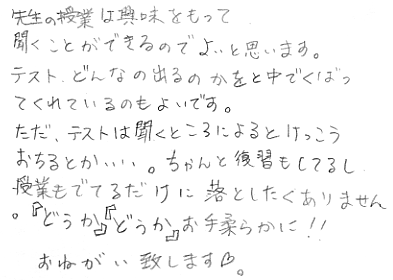 先生の授業は興味をもって
聞くことができるのでよいと思います。
テスト、どんなの出るのかをと中でくばっ
てくれているのもよいです。
ただ、テストは聞くところによるとけっこう
おちるとかいい。ちゃんと復習もしてるし
授業もでてるだけに落としたくありません
。『どうか』『どうか』お手柔らかに!!
おねがい致します♡。